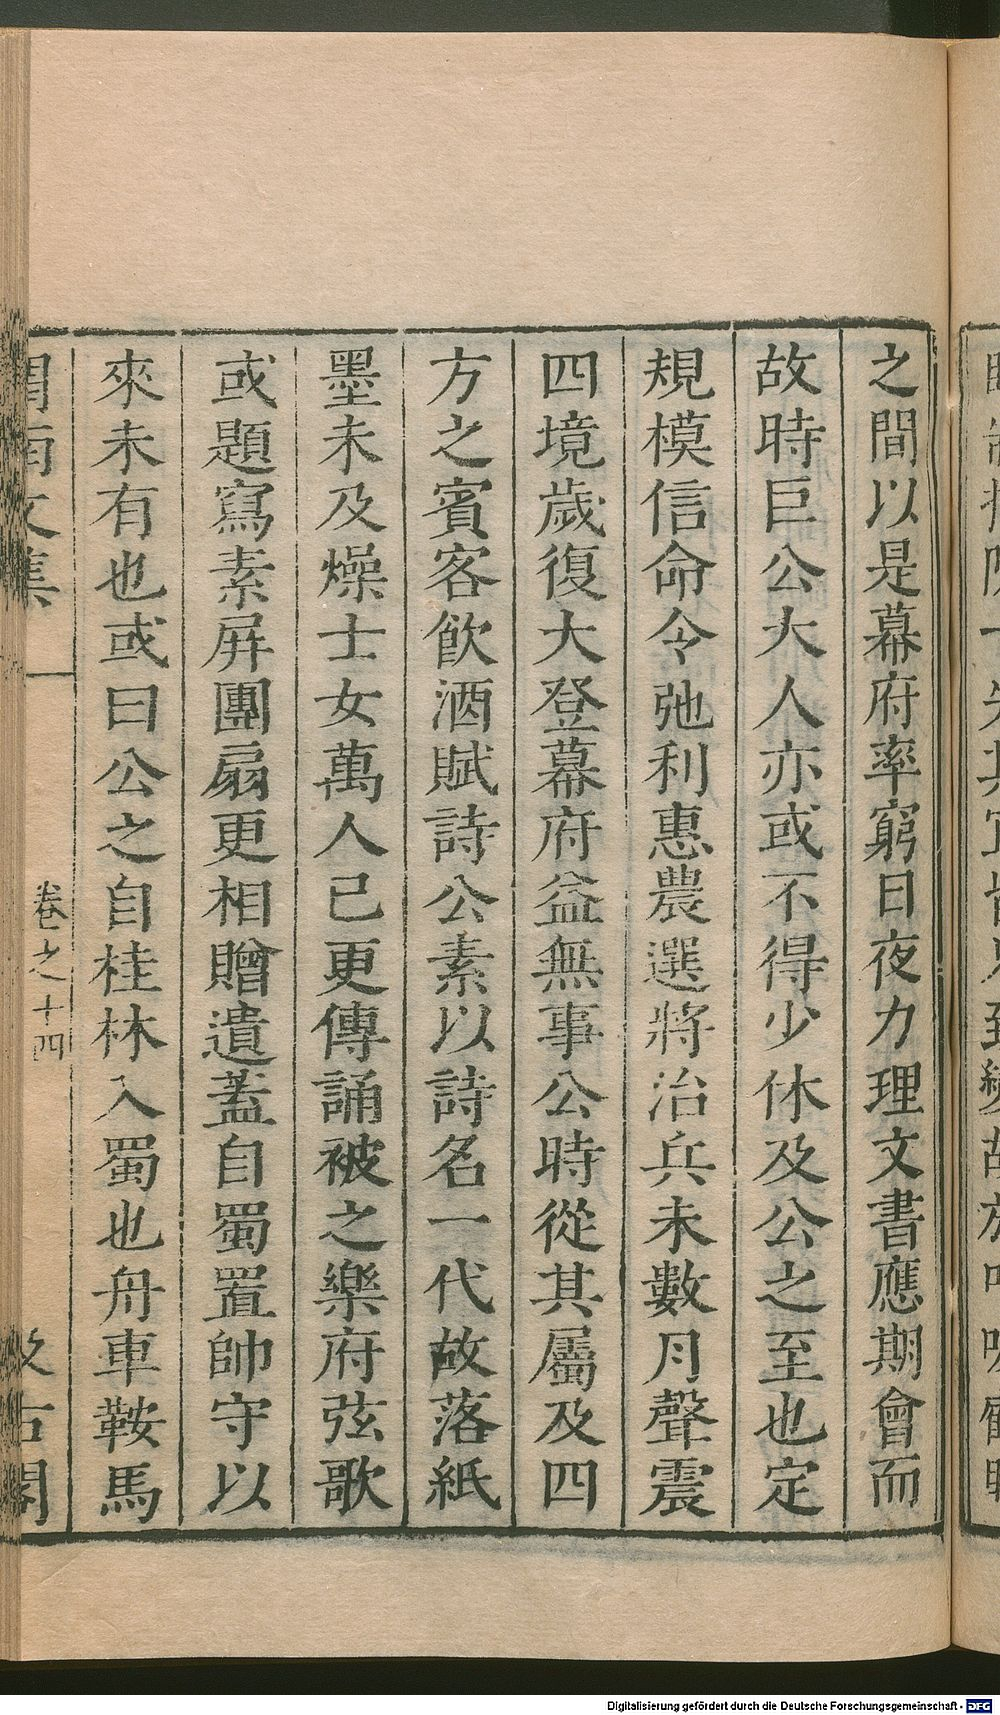 之間以是幕府率窮日夜力理文書應期會而
故時巨公大人亦或不得少休及公之至也定
規模信命令弛利惠農選將治兵未數月聲震
四境歲復大登幕府益無事公時從其屬及四
方之賓客飲酒賦詩公素以詩名一代故落紙
墨未及燥士女萬人已更傳誦被之樂府弦歌
或題寫素屏團扇更相贈遺蓋自蜀置帥守以
來未有也或曰公之自桂林入蜀也舟車鞍馬
渭南文集 卷之十四 汲古閣
Digitalisierung gefördert durch die Deutsche Forschungsgemeinschaft - DFG